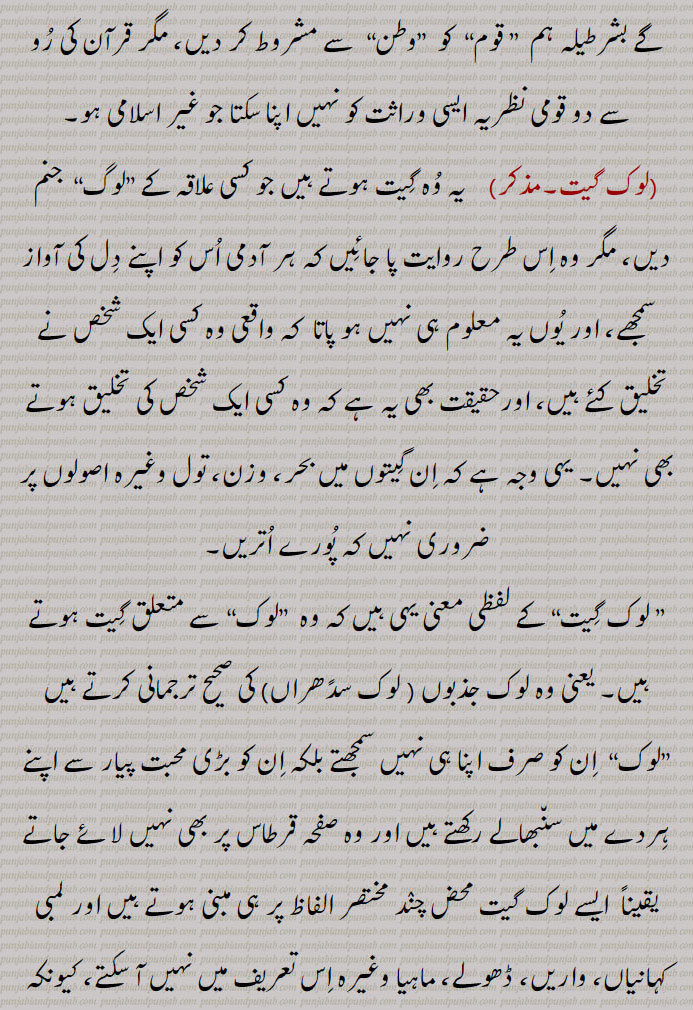 گے بشرطیلہ ہم ”قوم“ کو ”وطن“ سے مشروط کر دیں، مگر قرآن کی رُو
سے دو قومی نظریہ ایسی وراثت کو نہیں اپنا سکتا جو غیر اسلامی ہو۔
(لوک گیت۔مذکر) یہ وُہ گِیت ہوتے ہیں جو کسی علاقہ کے ”لوگ“ جنم
دیں، مگر وہ اِس طرح روایت پا جائِیں کہ ہر آدمی اُس کو اپنے دِل کی آواز
سمجھے، اور یُوں یہ معلوم ہی نہیں ہو پاتا کہ واقعی وہ کسی ایک شخص نے
تخلیق کئے ہیں، اور حقیقت بھی یہ ہے کہ وہ کسی ایک شخص کی تخلیق ہوتے
بھی نہیں۔ یہی وجہ ہے کہ اِن گِیتوں میں بحر، وزن، تول وغیرہ اصولوں پر
ضروری نہیں کہ پُورے اُتریں۔
”لوک گِیت“ کے لفظی معنی یہی ہیں کہ وہ ”لوک“ سے متعلق گِیت ہوتے
ہیں۔ یعنی وہ لوک جذبوں ( لوک سدًھراں) کی صحیح ترجمانی کرتے ہیں
”لوک“ اِن کو صرف اپنا ہی نہیں سمجھتے بلکہ اِن کو بڑی محبت پیار سے اپنے
ہِردے میں سنّبھالے رکھتے ہیں اور وہ صفحہ قرطاس پر بھی نہیں لائے جاتے
یقیناً ایسے لوک گیت محض چنٛد مختصر الفاظ پر ہی مبنی ہوتے ہیں اور لمبی
کہانیاں، واریں، ڈھولے، ماہیا وغیرہ اِس تعریف میں نہیں آ سکتے، کیونکہ